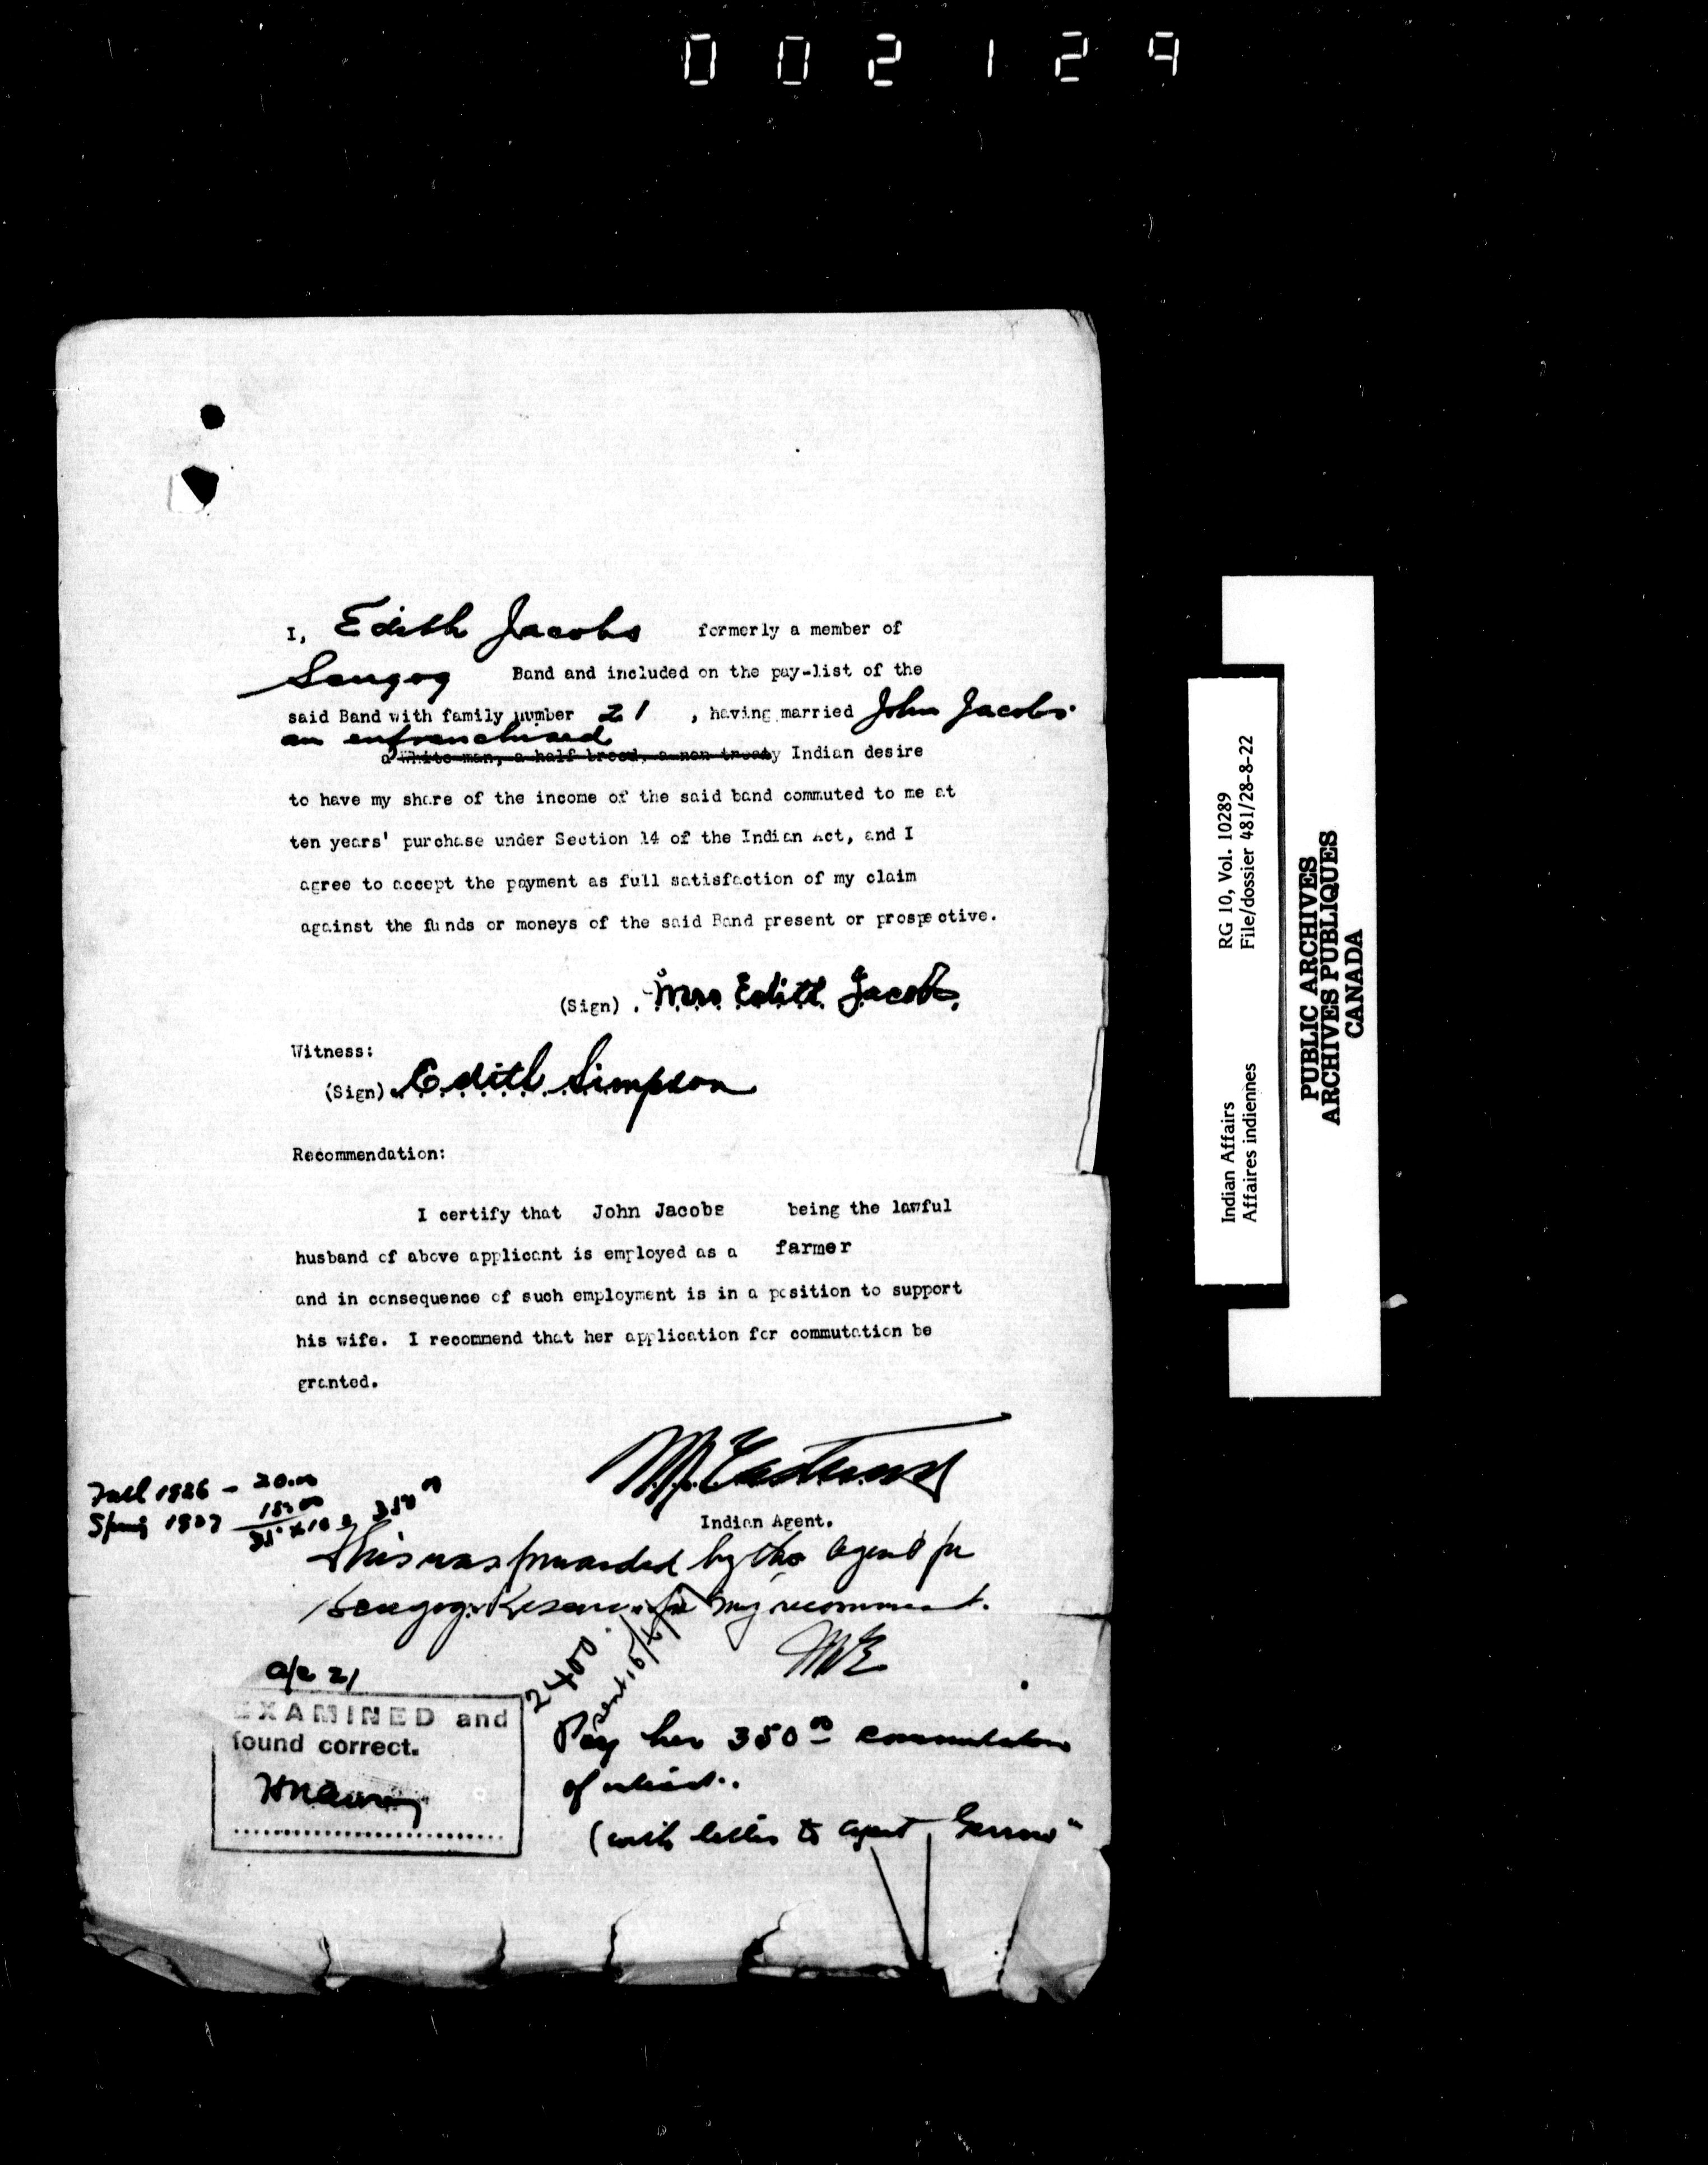 002129
I, Edith Jacobs formerly a member of
Scugog Band and included on the pay-list of the
said Band with family number 21 , having married John Jacobs
an enfranchised
a White man, a half breed, a non treaty Indian desire
to have my share of the income of the said band commuted to me at
ten years' purchase under Section 14 of the Indian Act, and I
agree to accept the payment as full satisfaction of my claim
against the funds or moneys of the said Band present or prospective.
(Sign) . Mrs Edith Jacobs
Witness:
(Sign) Edith Simpson
Recommendation:
I certify that John Jacobs being the lawful
husband of above applicant is employed as a farmer
and in consequence of such employment is in a position to support
his wife. I recommend that her application for commutation be
granted.
Fall 1926 - 20.00
Spring 1927 15.00
35. x 10 = 350 00
Indian Agent.
This was forwarded by the agent for
Scugog Reserve for my recommend.
McE
a/c 21
2400
Sent
EXAMINED and
found correct.
Pay her 350 00 commutation
of interest.
(with letter to agent Gerrow"
Indian Affairs RG 10, Vol. 10289
Affaires indiennes File/dossier 481/28-8-22
PUBLIC ARCHIVES
ARCHIVES PUBLIQUES
CANADA